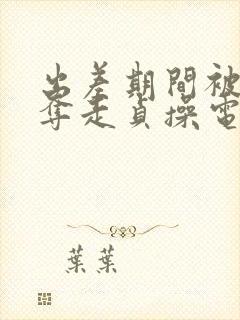 出差期間被
奪走貞操電
葉葉